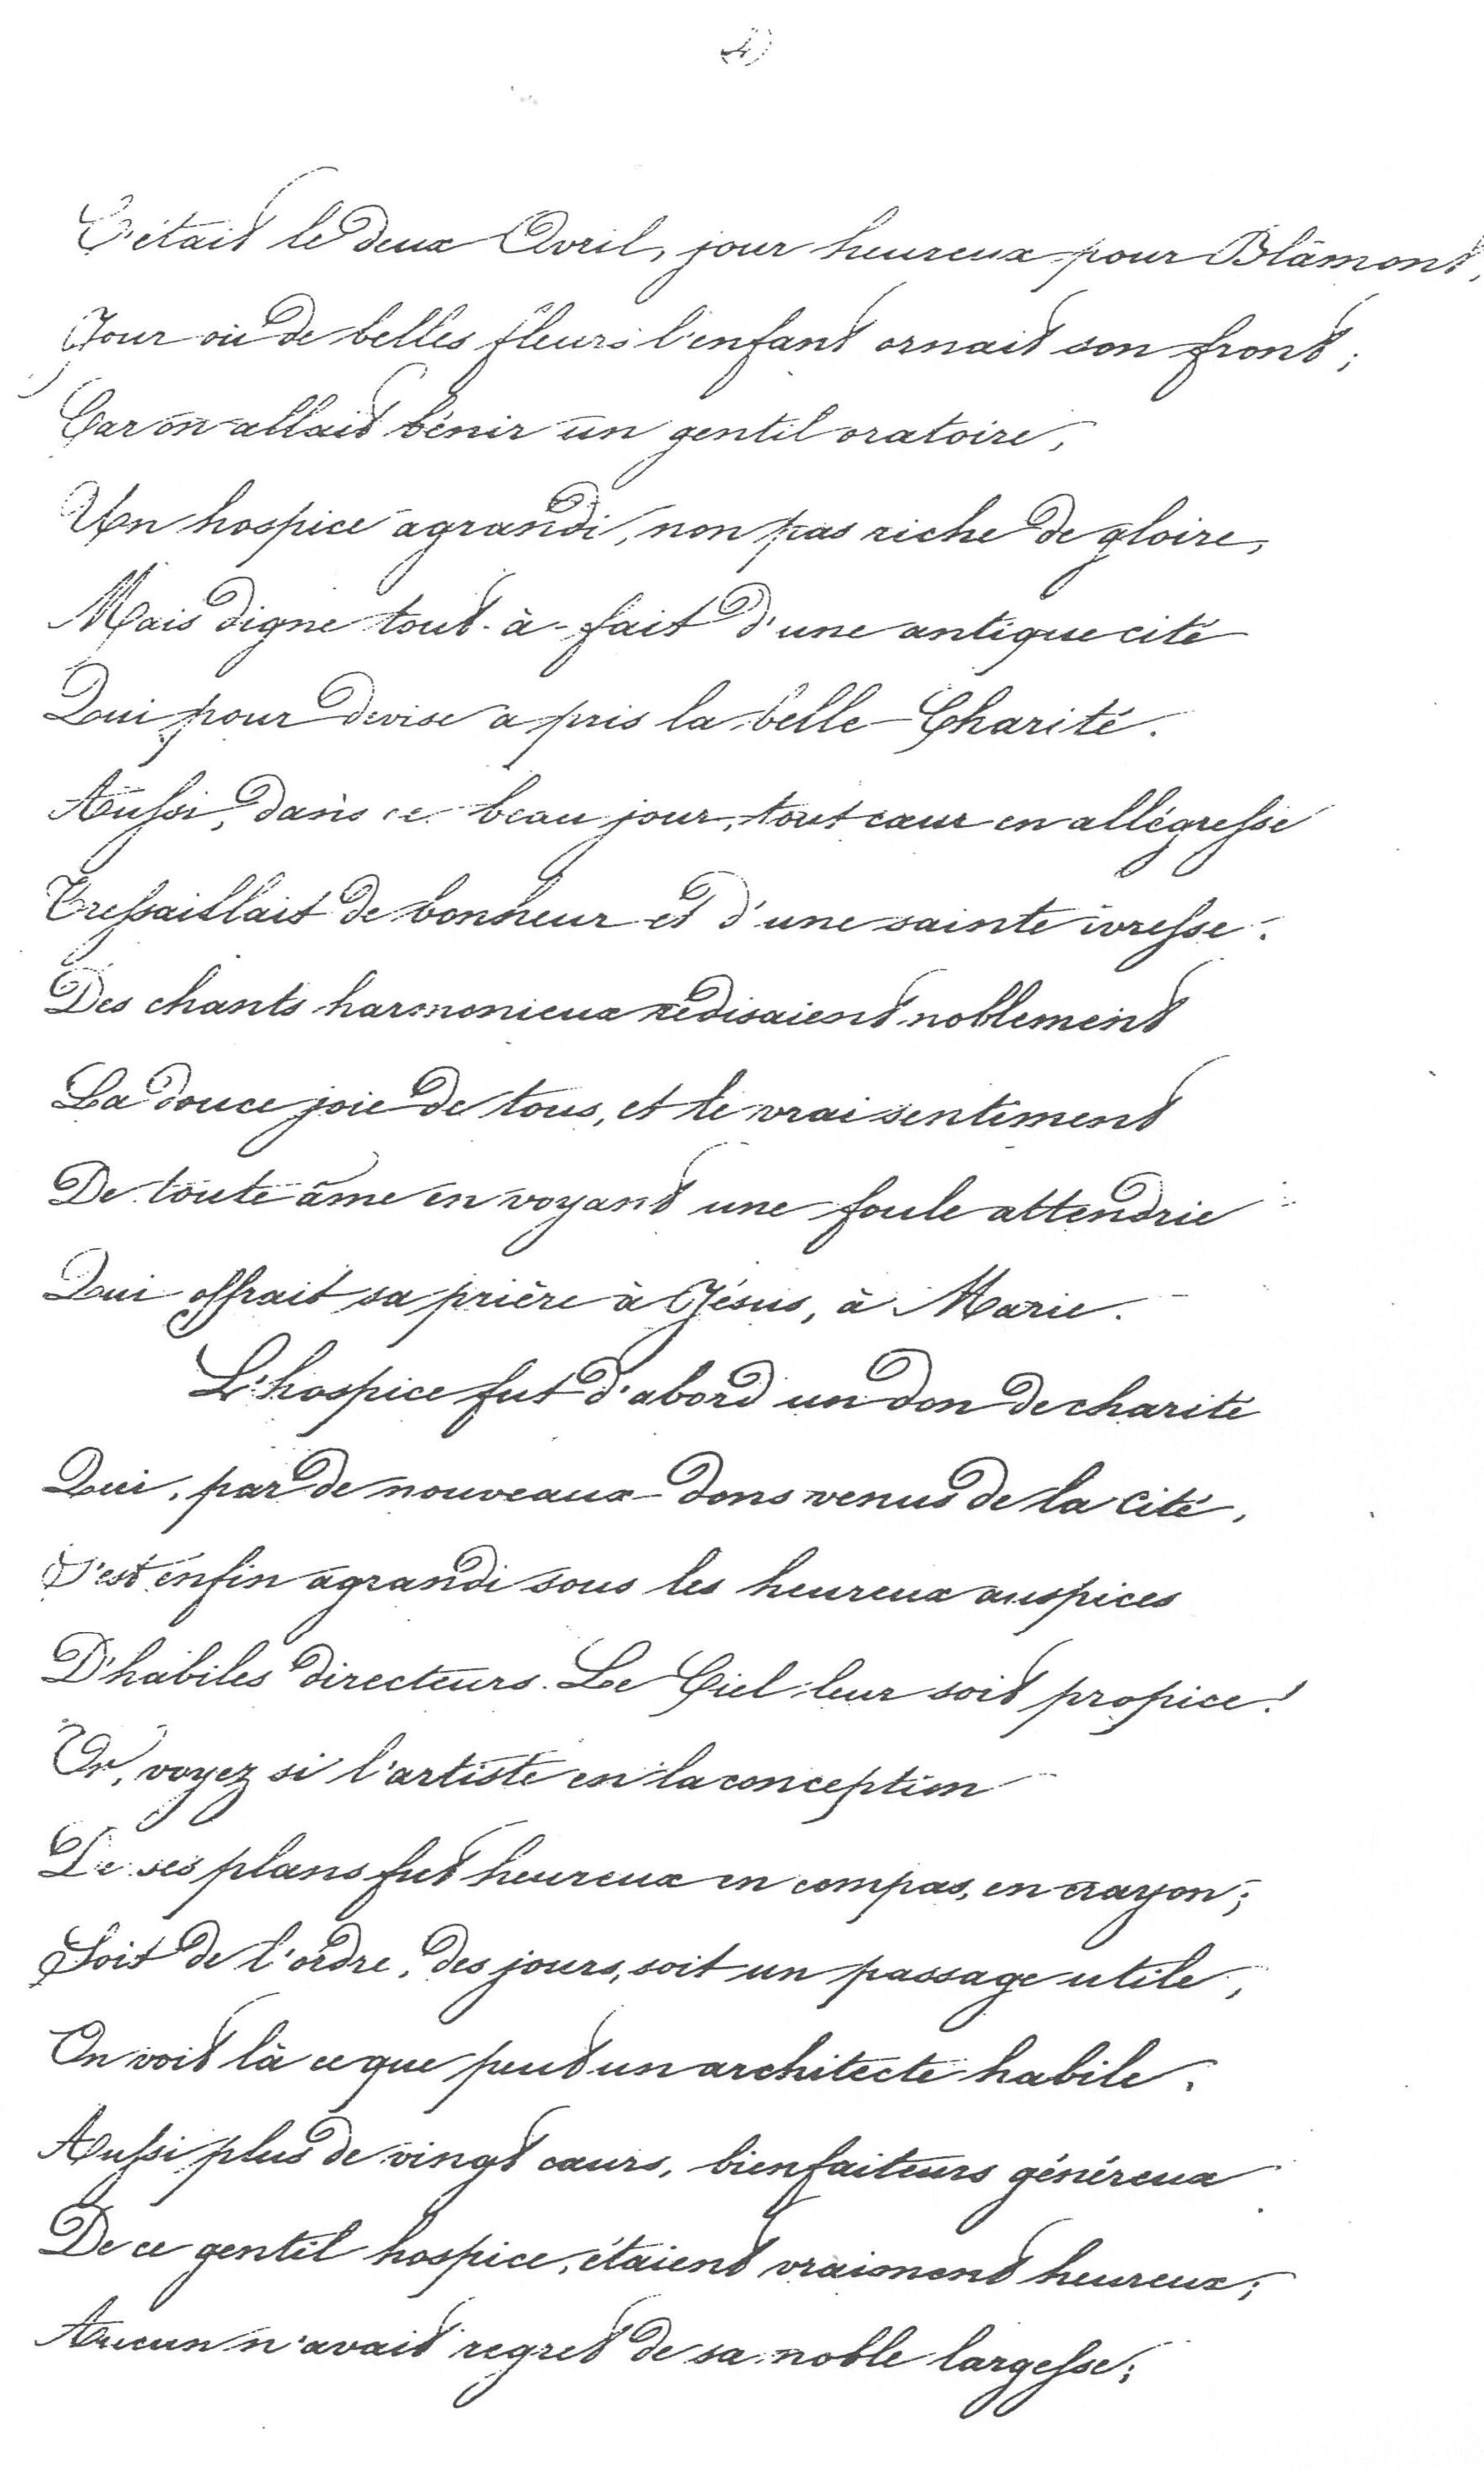 C'était le deux Avril, jour heureux pour Blâmont,
Jour où de belles fleurs l'enfant ornait son front;
Car on allait bénir un gentil oratoire,
Un hospice agrandi, non pas riche de gloire,
Mais digne tout-à-fait d'une antique cité
Qui pour devise a pris la belle Charité.
Aussi, dans ce beau jour, tout cœur en allégresse
Tressaillait de bonheur et d'une sainte ivresse.
Des chants harmonieux redisaient noblement
La douce joie de tous, et le vrai sentiment
De toute âme en voyant une foule attendrie
Qui offrait sa prière à Jésus, à Marie.
L'hospice fut d'abord un don de charité
Qui, par de nouveaux dons venus de la cité,
S'est enfin agrandi sous les heureux auspices
D'habiles directeurs. Le Ciel leur soit propice!
Or, voyez si l'artiste en la conception
De ses plans fut heureux en compas, en crayon;
Soit de l'ordre, des jours, soit un passage utile,
On voit là ce que peut un architecte habile.
Aussi plus de vingt cœurs, bienfaiteurs généreux
De ce gentil hospice, étaient vraiment heureux;
Aucun n'avait regret de sa noble largesse;